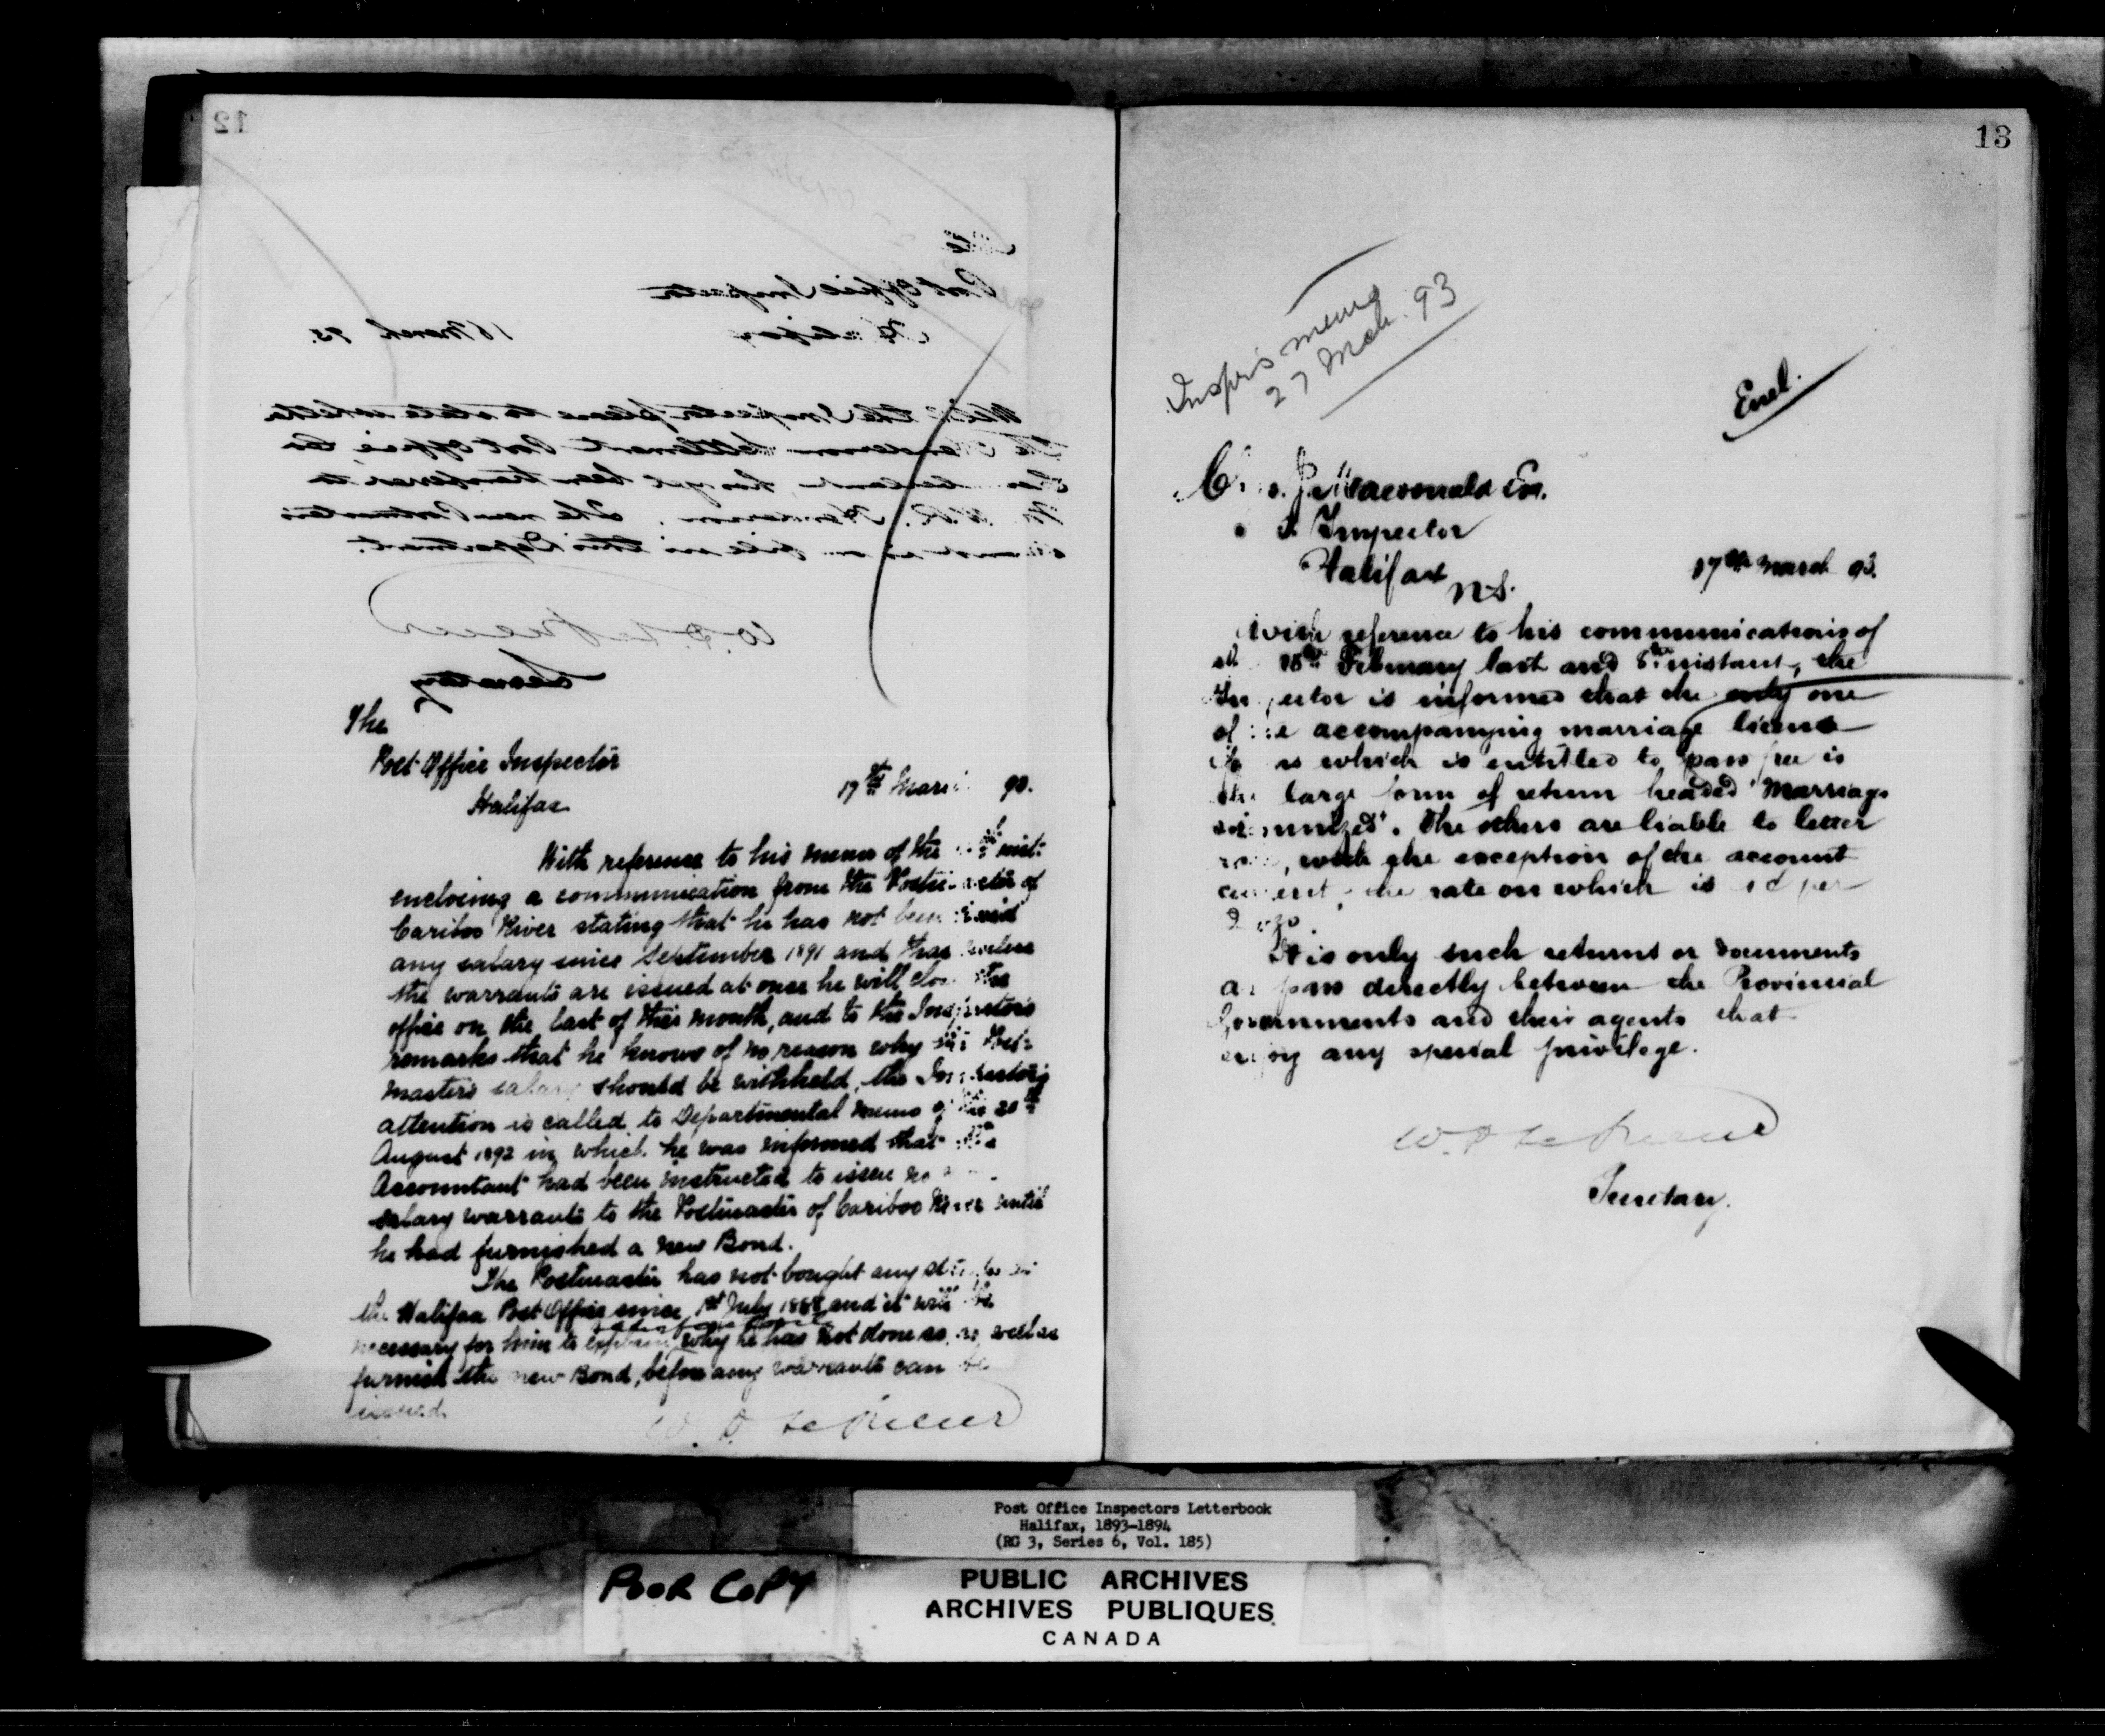 12
Post Office Inspector
Halifax
18 March 93.
Will the Inspector please to state whether
Settlement Post Office,
has yet been transferred to
Mr. Henderson. The new Postmaster's
is on file in this Department.
W. D. LeSueur
Secretary
The
Post Office Inspector
Halifax
17th March 93.
With reference to his memo of the inst:
enclosing a communication from the Postmaster of
Cariboo River stating that he has not been paid
any salary since September 1891 and that unless
the warrants are issued at once he will close the
office on the last of this month, and to the Inspector's
remarks that he knows of no reason why the Post-
master's salary should be withheld, the Inspector's
attention is called to Departmental memo of the 20th
August 1892 in which he was informed that the
Accountant had been instructed to issue no
salary warrants to the Postmaster of Cariboo River until
he had furnished a new Bond.
The Postmaster has not bought any stamps
the Halifax Post Office since 1st July 1888 and it will be
necessary for him to explain why he has not done so, as well as
furnish the new Bond, before any warrants can be
issued.
W. D. LeSueur
13
Inspr's memo
27 Mch. 93
Encl.
J. Macdonald Esq.
Inspector
Halifax
N.S.
17th March 93.
With reference to his communications of
February last and 8th instant, the
Inspector is informed that the only one
of the accompanying marriage license
which is entitled to pass free is
the large form of return headed "Marriages
solemnized". The others are liable to letter
rate, with the exception of the account
current, the rate on which is 1c per
2 ozs.
It is only such returns or documents
as pass directly between the Provincial
Governments and their agents that
enjoy any special privilege.
W. D. LeSueur
Secretary.
Post Office Inspectors Letterbook
Halifax, 1893-1894
(RG 3, Series 6, Vol. 185)
POOR COPY
PUBLIC ARCHIVES
ARCHIVES PUBLIQUES
CANADA